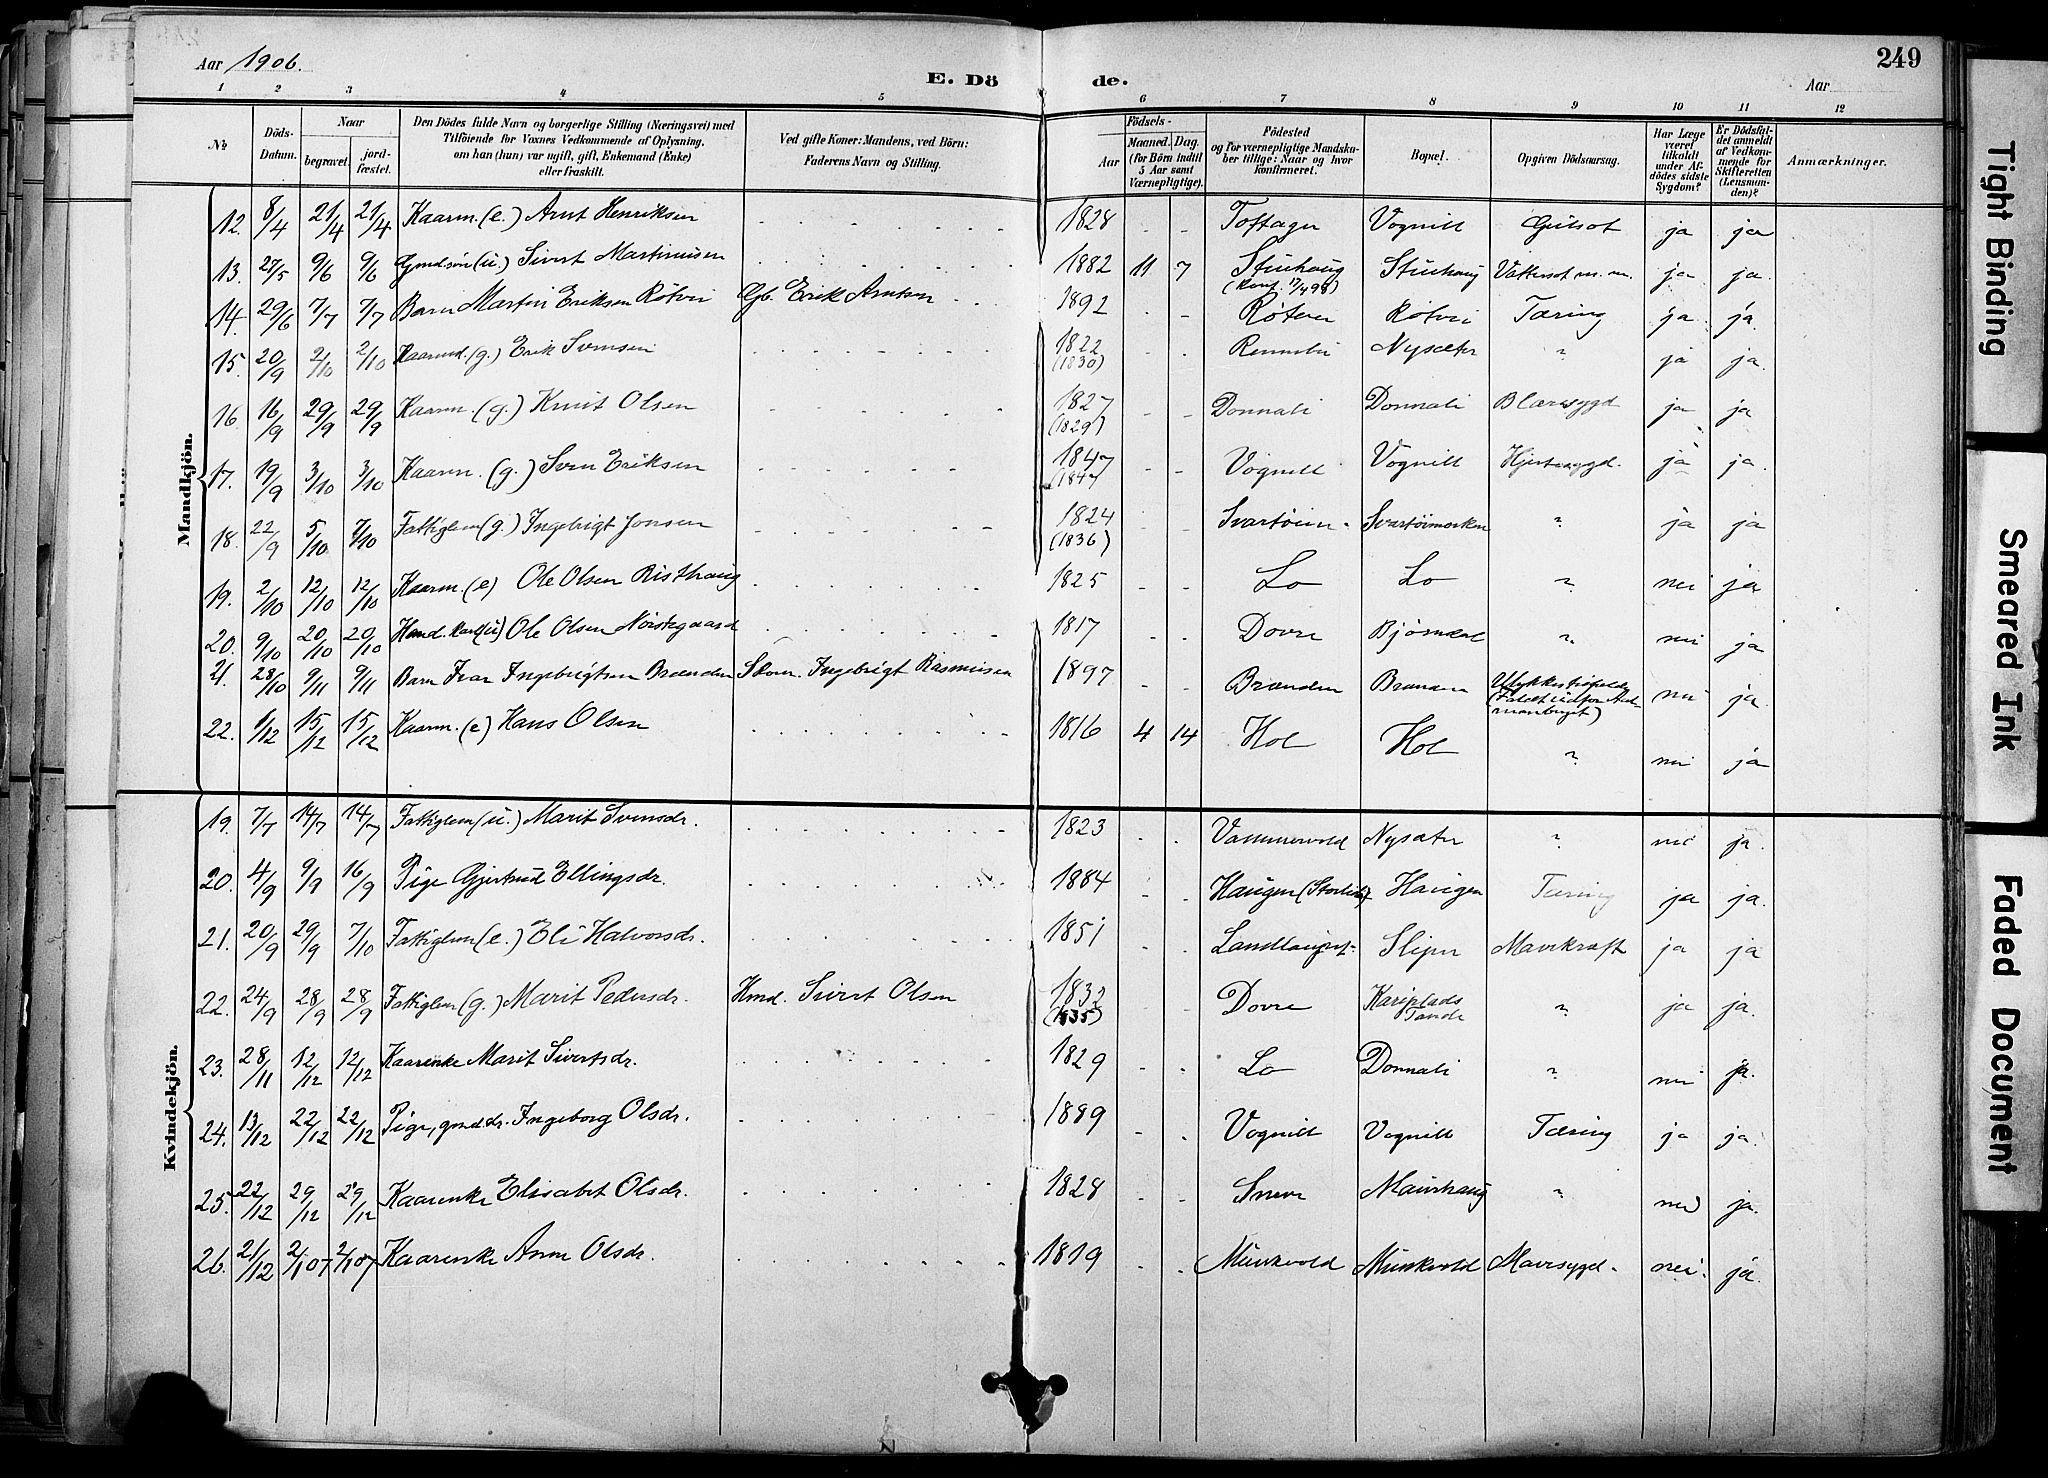 Aar 1906.
E. Döde.
249
Aar
1 2 3 4 5 6 7 8 9 10 11 12
No
Döds-Datum.
Naar begravet. jord-fæstet.
Den Dödes fulde Navn og borgerlige Stilling (Næringsvei) med Tilföiende for Voxnes Vedkommende af Oplysning, om han (hun) var ugift, gift, Enkemand (Enke) eller fraskilt.
Ved gifte Koner: Mandens, ved Börn: Faderens Navn og Stilling.
Födsels-
Aar
Maaned. Dag. (for Börn indtil 5 Aar samt Værnepligtige).
Födested og for værnepligtige Mandskaber tillige: Naar og hvor konfirmeret.
Bopæl.
Opgiven Dödsaarsag.
Har Læge været tilkaldt under Afdödes sidste Sygdom?
Er Dödsfaldet anmeldt af Vedkommende for Skifteretten (Lensmanden)?
Anmærkninger.
Mandkjön.
12. 8/4 21/4 21/4 Kaarm. (e.) Arnt Henriksen 1828 - - Toftager Vognill Gulsot ja ja
13. 27/5 9/6 9/6 Gmdsön (u.) Sivert Martinusen 1882 11 7 Stuehaug (Konf. 17/4 98) Stuehaug Vattersot m. m. ja ja.
14. 29/6 7/7 7/7 Barn Martin Eriksen Rötvei Gb. Erik Arntsen 1892 - - Rötvei Rötvei Tæring ja ja.
15. 20/9 2/10 2/10 Kaarmd. (g.) Erik Svensen 1822 (1830) - - Rennebu Nysæter " ja ja.
16. 16/9 29/9 29/9 Kaarm. (g.) Knut Olsen 1827 (1829) - - Donnali Donnali Blæresygd ja ja
17. 19/9 3/10 3/10 Kaarm. (g.) Sven Eriksen 1847 (1847) - - Vognill Vognill Hjertesygd. ja ja.
18. 22/9 5/10 7/10 Fattiglem (g.) Ingebrigt Jonsen 1824 (1836) Svartöien - Svartöimorken " ja ja
19. 2/10 12/10 12/10 Kaarm. (e) Ole Olsen Risthaug 1825 - - Lo Lo " nei ja
20. 9/10 20/10 20/10 Hand. karl (u) Ole Olsen Norstegaard 1817 - - Dovre " nei ja
21. 28/10 9/11 9/11 Barn Ivar Ingebrigtsen Brænden Skom. Ingebrigt Rasmusen 1897 - - Brænden Brænden Ulykkestilfælde nei ja.
22. 1/12 15/12 15/12 Kaarm. (e) Hans Olsen 1816 4 14 Hol Hol " nei ja
Kvindekjön.
19. 7/7 14/7 14/7 Fattiglem (u.) Marit Svensdr. 1823 - - Vammervold Nysæter " nei ja.
20. 4/9 9/9 16/9 Pige Gjertrud Ellingsdr. 1884 - - Haugen (Storlid) Haugen Tæring ja ja.
21. 20/9 29/9 7/10 Fattiglem (e.) Eli Halvorsdr. 1851 - - Slipen Mavekræft ja ja
22. 24/9 28/9 28/9 Fattiglem (g.) Marit Pedersdr. Hmd. Sivert Olsen 1832 (1835) - - Dovre " ja ja.
23. 28/11 12/12 12/12 Kaarenke Marit Sivertsdr. 1829 - - Lo Donnali " nei ja.
24. 13/12 22/12 22/12 Pige, gmd.dr. Ingeborg Olsdr. 1889 - - Vognill Vognill Tæring ja ja.
25. 22/12 29/12 29/12 Kaarenke Elisabet Olsdr. 1828 - - Sneve Maurhaug " nei ja.
26. 21/12 2/1 07 2/1 07 Kaarenke Anne Olsdr. 1819 - - Munkvold Munkvold Mavesygd. nei. ja.
Tight Binding
Smeared Ink
Faded Document